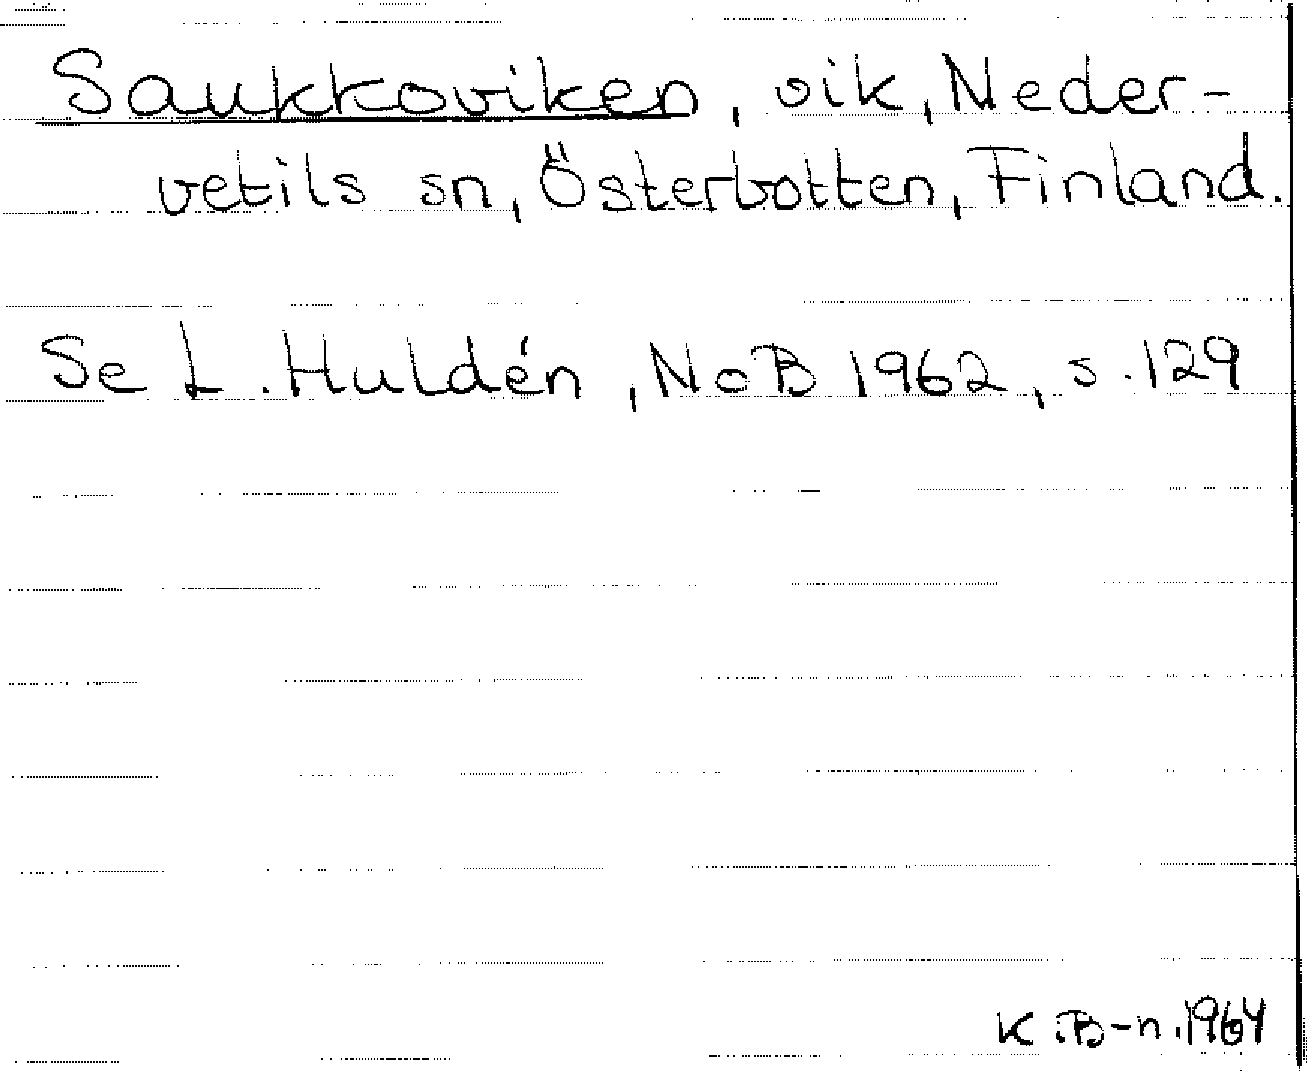 Saukkoviken, vik, Neder-
vetils sn, Österbotten, Finland.
Se L. Huldén, NoB 1962, s. 129
K.B-n. 1964